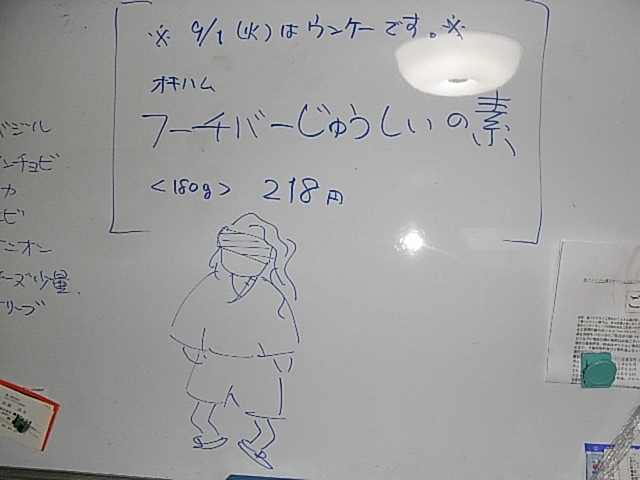 ※ 9/1(火)はウンケーです。※
オキハム
フーチバーじゅうしぃの素
<180g> 218円
バジル
ンチョビ
カ
ビ
ニオン
ーズ少量.
リーブ